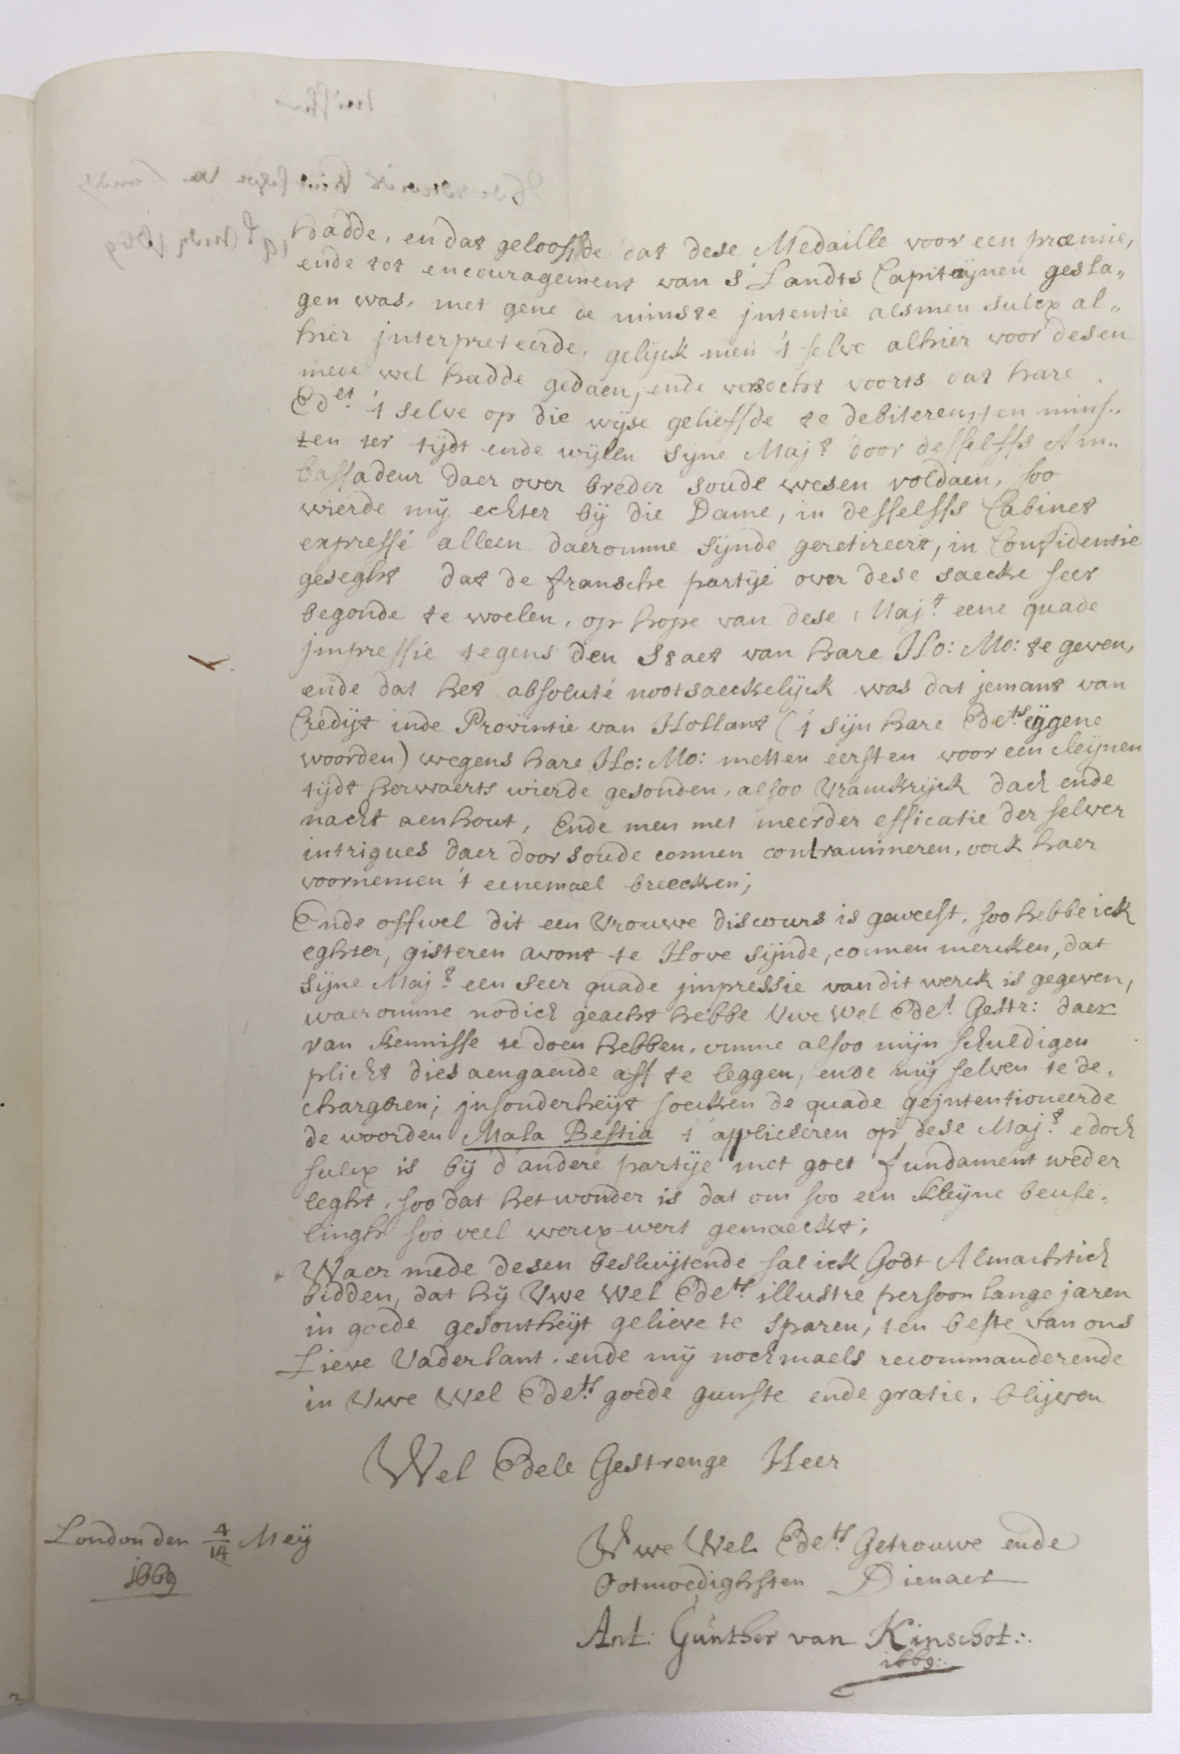 hadde, en dat geloofde dat dese Medaille voor een præmie,
ende tot encouragement van s' Landts Capiteijnen gesla„
gen was, met gene de minste jntentie alsmen sulcx al„
hier jnterpreteerde, gelijck men 't selve alhier voor desen
mede wel hadde gedaen, ende versocht voorts dat hare
Edet. 't selve op die wijse gelieffde te debiteren, ten mins„
ten ter tijdt ende wijlen Sijne Majt. door desselffs Am„
bassadeur daer over breder soude wesen voldaen, soo
wierde mij echter bij die Dame, in desselffs Cabinet
expressé alleen daeromme sijnde geretireert, in Confidentie
geseght dat de fransche partije over dese saecke seer
begonde te woelen, op hope van dese Majt. eene quade
jmpressie tegens den Staet van hare Ho: Mo: te geven,
ende dat het absoluté nootsaeckelijck was dat jemant van
Credijt inde Provintie van Hollant ('t sijn hare Edets. eijgene
woorden) wegens hare Ho: Mo: metten eersten voor een cleijnen
tijdt herwaerts wierde gesonden, alsoo Vranckrijck dach ende
nacht aenhout, Ende men met meerder efficatie der selver
intrigues daer door soude connen contramineren, oock haer
voornemen 't eenemael breecken;
Ende offwel dit een Vrouwe discours is geweest, soo hebbe ick
eghter, gisteren avont te Hove sijnde, connen mercken, dat
Sijne Majt. een seer quade jmpressie van dit werck is gegeven,
waeromme nodich geacht hebbe Uwe Wel Edet. Gestr: daer
van kennisse te doen hebben, omme alsoo mijn schuldigen
plicht dies aengaende aff te leggen, ende mij selven te de„
chargeren; jnsonderheijt soecken de quade gejntentioneerde
de woorden Mala Bestia t' appliceren op dese Majt. edoch
sulcx is bij d'andere partije met goet fundament weder
leght, soo dat het wonder is dat om soo een kleijne beuse„
lingh soo veel wercx wert gemaeckt;
Waer mede desen besluijtende sal ick Godt Almachtich
bidden, dat hij Uwe Wel Edets. illustre persoon lange jaren
in goede gesontheijt gelieve te sparen, ten beste van ons
Lieve Vaderlant, ende mij nochmaels recommanderende
in Uwe Wel Edets. goede gunste ende gratie, blijven
Wel Edele Gestrenge Heer
London den 4/14 Meij
1669
Uwe Wel Edets. Getrouwe ende
Ootmoedighsten Dienaer
Ant: Günther van Kinschot:.
1669:.